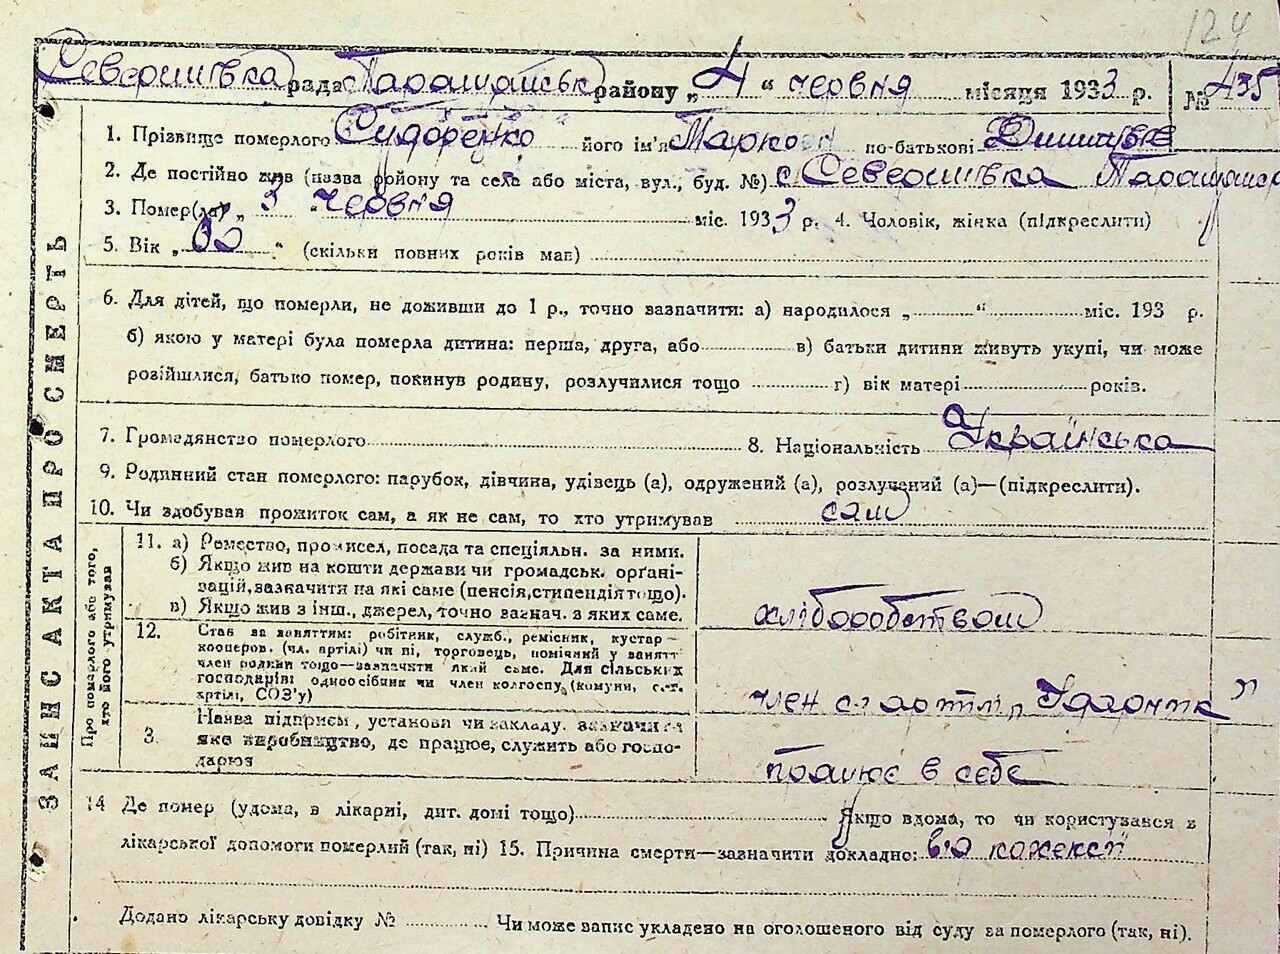 124
Северинівка рада Таращанськ району „ 4 “ червня місяця 1933 р. № 435
ЗАПИС АКТА ПРО СМЕРТЬ
1. Прізвище померлого Сидоренко його ім'я Марко по-батькові
2. Де постійно жив (назва району та села або міста, вул., буд. №) с. Северинівка
3. Помер(ла) „ 3 “ червня міс. 1933 р. 4. Чоловік, жінка (підкреслити)
5. Вік „ “ (скільки повних років мав)
6. Для дітей, що померли, не доживши до 1 р., точно зазначити: а) народилося „ “ міс. 193 р.
б) якою у матері була померла дитина: перша, друга, або в) батьки дитини живуть укупі, чи може
розійшлися, батько помер, покинув родину, розлучилися тощо г) вік матері років.
7. Громадянство померлого 8. Національність Українська
9. Родинний стан померлого: парубок, дівчина, удівець (а), одружений (а), розлучений (а)—(підкреслити).
10. Чи здобував прожиток сам, а як не сам, то хто утримував сам
Про померлого або того,
хто його утримував
11. а) Ремество, промисел, посада та спеціяльн. за ними.
б) Якщо жив на кошти держави чи громадськ. орґані-
зацій, зазначити на які саме (пенсія, стипендія тощо).
в) Якщо жив з інш., джерел, точно вазнач. з яких саме.
хліборобством
12. Став за заняттям: робітник, служб., ремісник, кустар—
кооперов. (чл. артілі) чи ні, торговець, помічний у занятт
член родини тощо—зазначити який саме. Для сільських
господарів: одноосібник чи член колгоспу (комуни, с.-г.
артілі, СОЗ'у)
член с г артілі „Ударник“
3. Назва підприєм, установи чи закладу. зазначити
яке виробництво, де працює, служить або госпо-
дарює
працює в себе
14 Де помер (удома, в лікарні, дит. домі тощо) Якщо вдома, то чи користувався з
лікарської допомоги померлий (так, ні) 15. Причина смерти—зазначити докладно: від кахексії
Додано лікарську довідку № Чи може запис укладено на оголошеного від суду за померлого (так, ні).